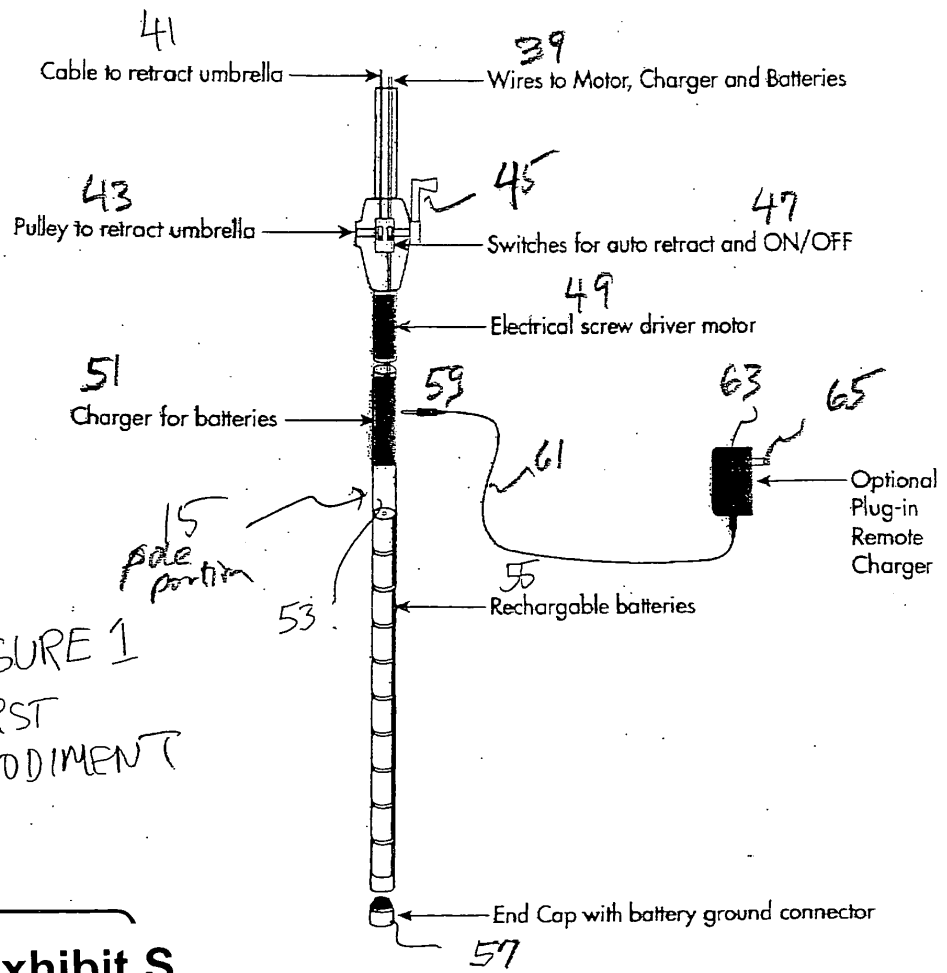 41
Cable to retract umbrella
39
Wires to Motor, Charger and Batteries
43
Pulley to retract umbrella
45
47
Switches for auto retract and ON/OFF
49
Electrical screw driver motor
51
Charger for batteries
59
61
63
65
Optional
Plug-in
Remote
Charger
15
pole
portion
53
55
Rechargable batteries
GURE 1
RST
ODIMENT
End Cap with battery ground connector
57
xhibit S